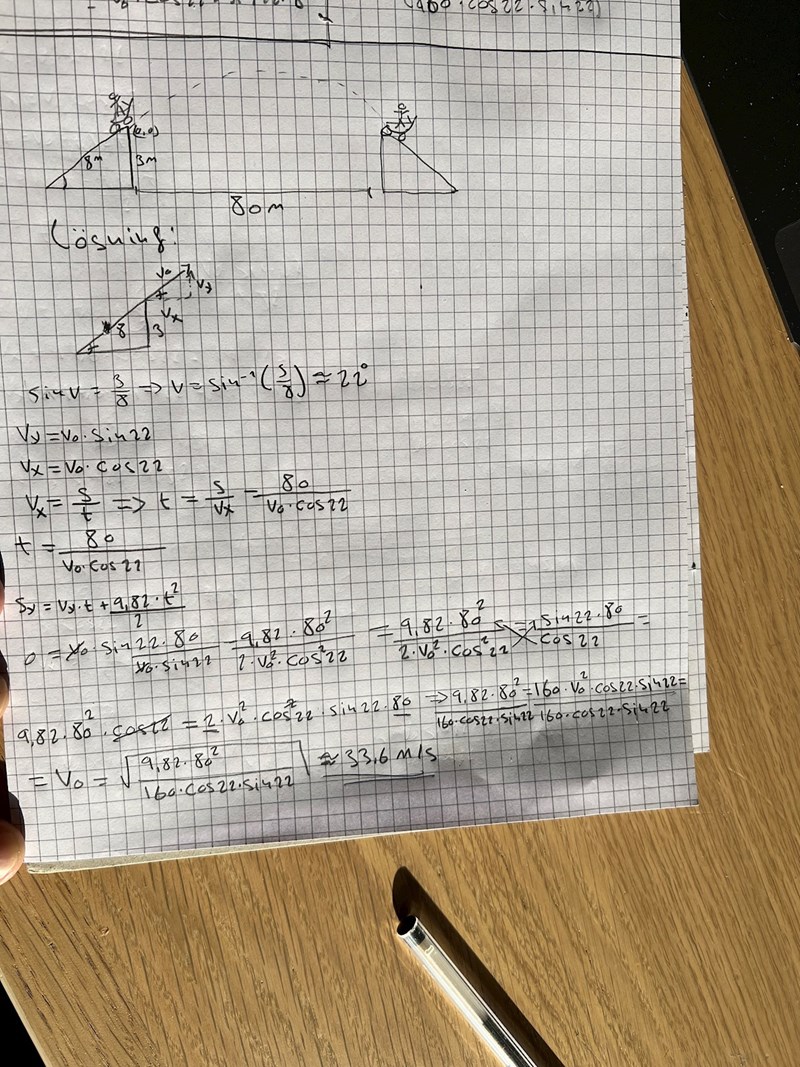 (160·cos22·sin22)
(0,0)
8m
3m
80m
Lösning:
v₀
vy
vx
8
3
sin v = 3/8 => v = sin⁻¹(3/8) ≈ 22°
Vy = v₀ · sin22
Vx = v₀ · cos22
Vx = s/t => t = s/Vx = 80/(v₀·cos22)
t = 80/(v₀·cos22)
Sy = Vy·t + 9,82·t²/2
0 = v₀·sin22·80/(v₀·sin22) - 9,82·80²/(2·v₀²·cos²22) = 9,82·80²/(2·v₀²·cos²22) = sin22·80/cos22 =
9,82·80²·cos22 = 2·v₀²·cos²22·sin22·80 => 9,82·80²/(160·cos22·sin22) = 160·v₀²·cos22·sin22/(160·cos22·sin22) =
= V₀ = √(9,82·80²/(160·cos22·sin22)) ≈ 33,6 m/s